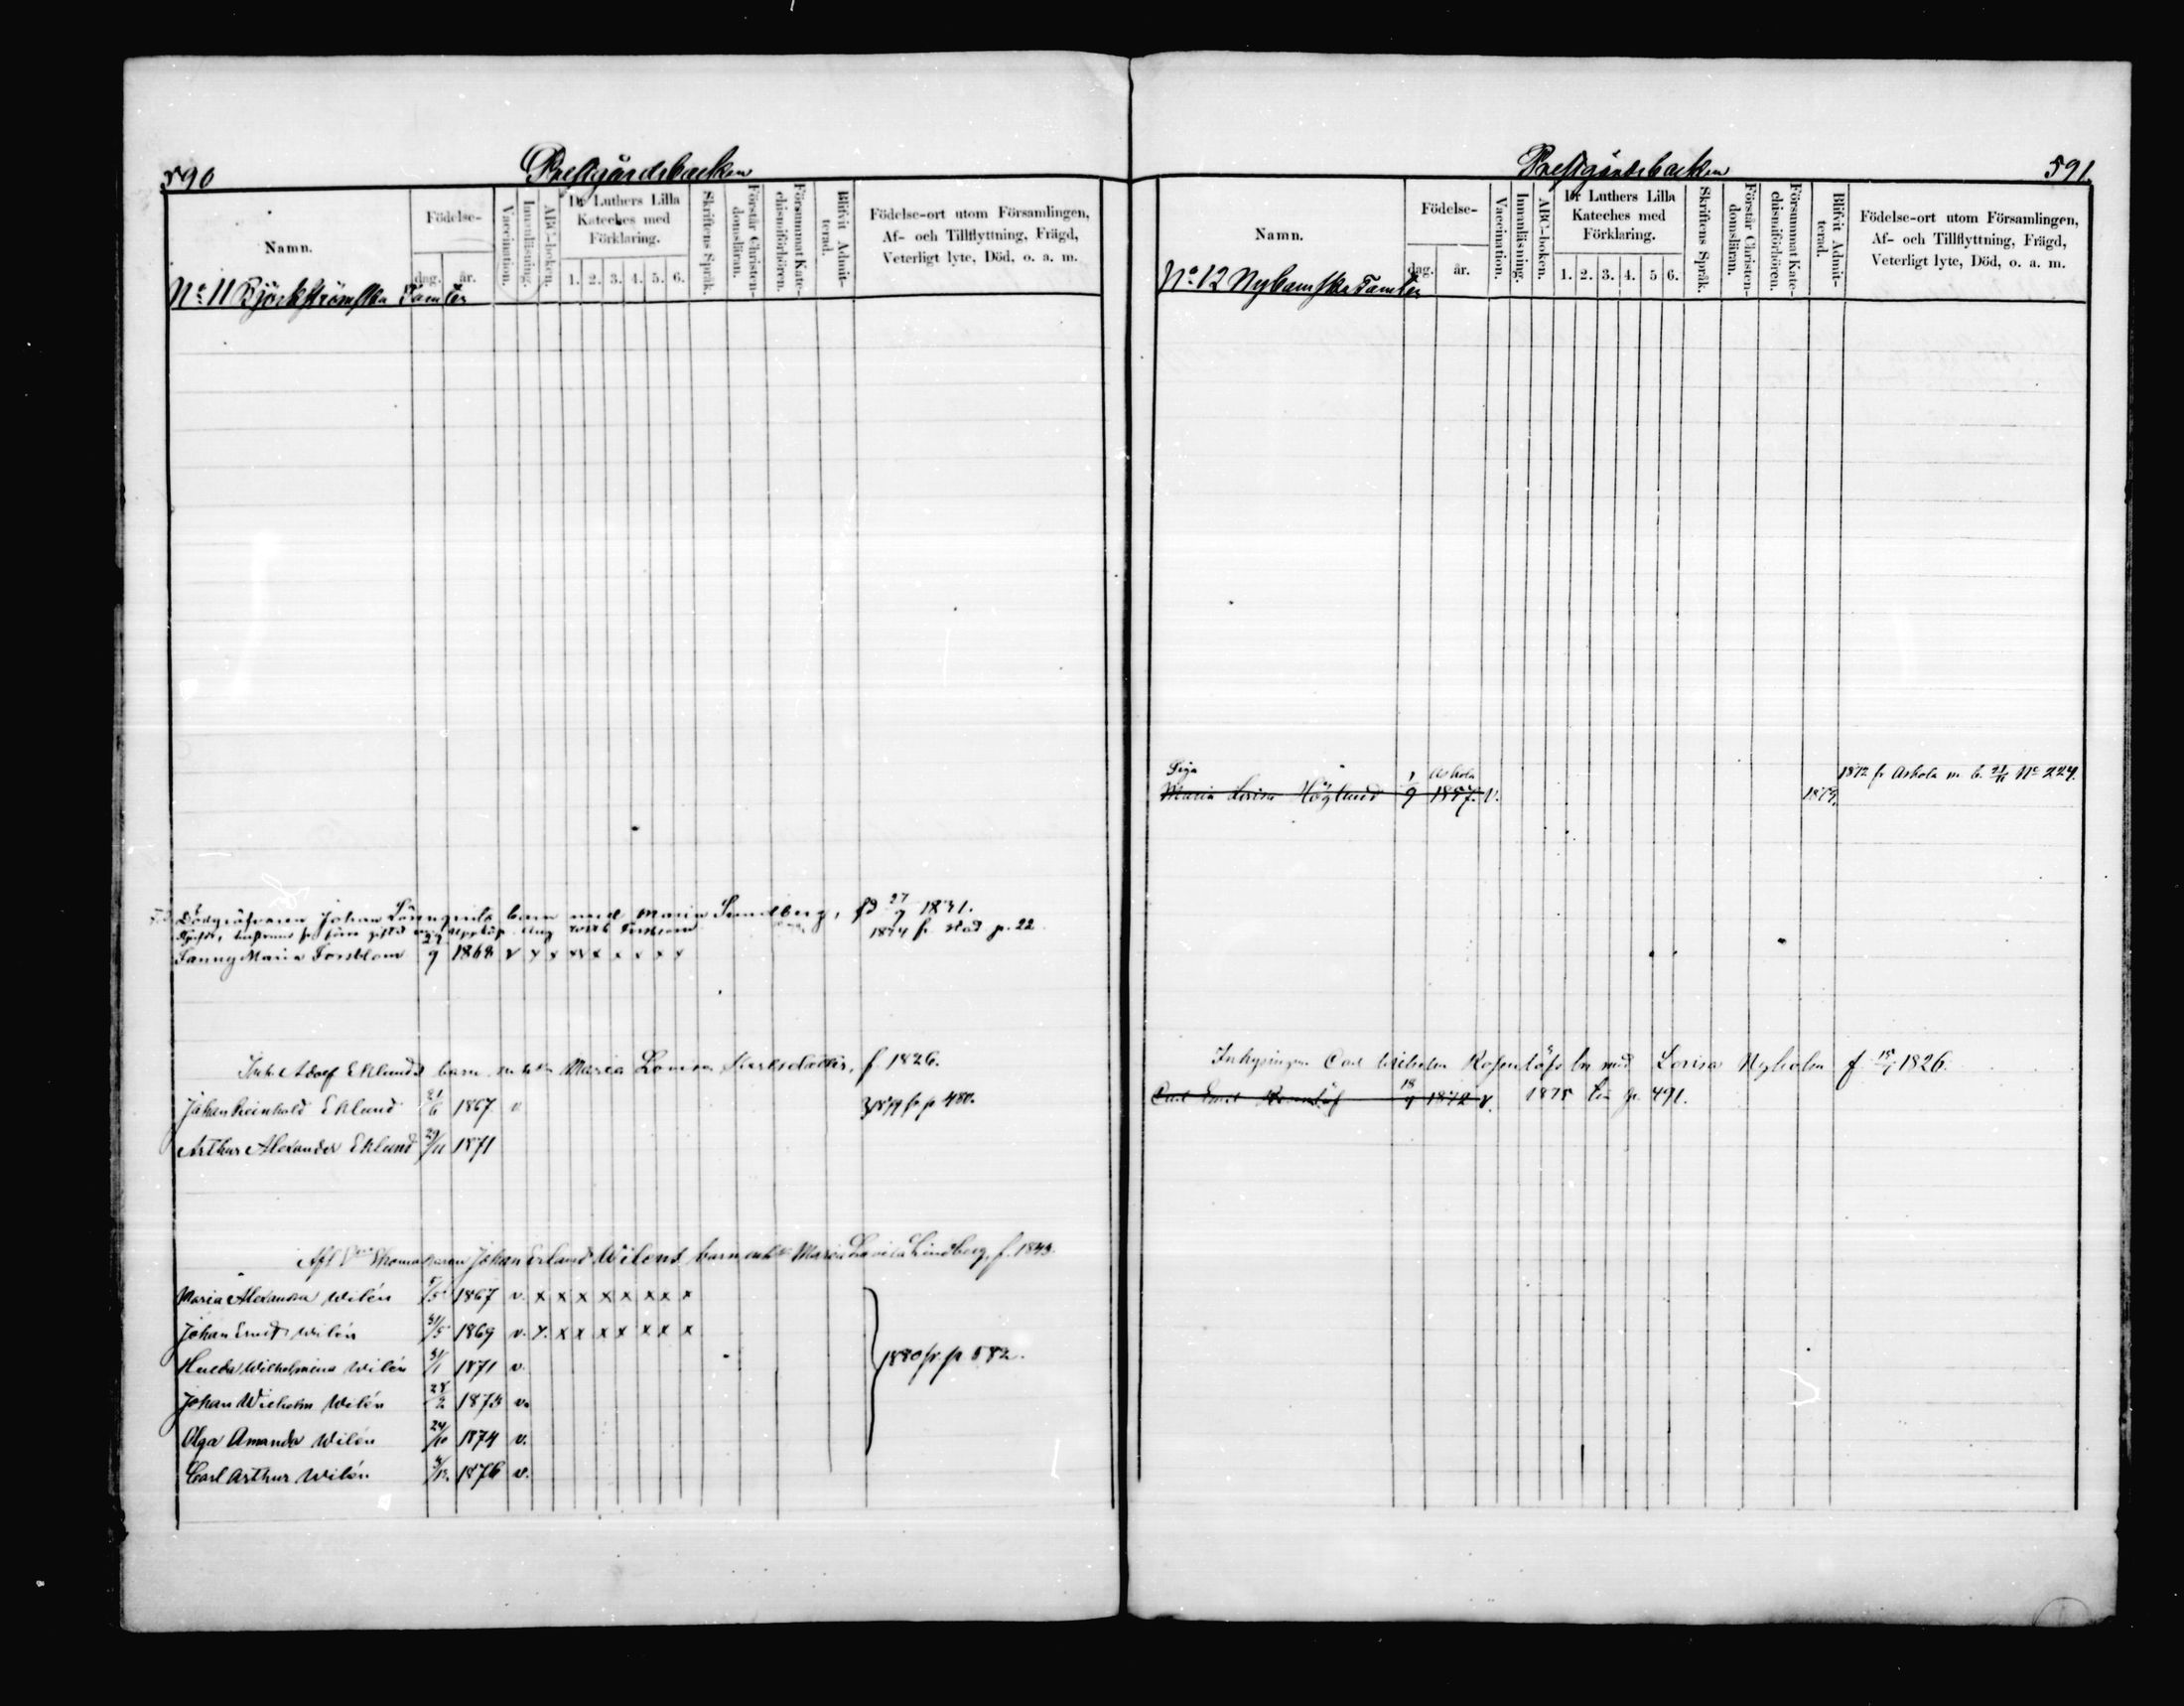 590
Prestgårdsbacken
Namn.
Födelse-
dag.
år.
Vaccination.
Innanläsning.
ABC-boken.
Dr Luthers Lilla
Kateches med
Förklaring.
1. 2. 3. 4. 5. 6.
Skriftens Språk.
Förstår Christen-
domsläran.
Försummat Kate-
chismiförhören.
Blifvit Admit-
terad.
Födelse-ort utom Församlingen,
Af- och Tillflyttning, Frägd,
Veterligt lyte, Död, o. a. m.
No 11 Björkströmska Tomten
Johan Lönnqvists barn med Maria Sundberg, 27/9 1831.
1874 fr. stad p. 22
Fanny Maria Forsblom 27/9 1868 v x x x x x x x x
Adolf Eklunds barn m. Maria Lovisa f. 1826.
Johan Reinhold Eklund 21/6 1867 v 1879 fr p 480.
Arthur Alexander Eklund 29/11 1871
Afl Skomakaren Johan Erland Wiléns barn m h Maria Lovisa Lindberg, f. 1843.
Maria Alexandra Wilén 5/5 1867 v. x x x x x x x x
Johan Ernst Wilén 31/5 1869 v. x x x x x x x x
Hulda Wilhelmina Wilén 31/1 1871 v.
1880 fr p 582.
Johan Wilhelm Wilén 28/2 1873 v.
Olga Amanda Wilén 24/10 1874 v.
Carl Arthur Wilén 1876 v.
Prestgårdsbacken
591.
Namn.
Födelse-
dag.
år.
Vaccination.
Innanläsning.
ABC-boken.
Dr Luthers Lilla
Kateches med
Förklaring.
1. 2. 3. 4. 5 6.
Skriftens Språk.
Förstår Christen-
domsläran.
Försummat Kate-
chismiförhören.
Blifvit Admit-
terad.
Födelse-ort utom Församlingen,
Af- och Tillflyttning, Frägd,
Veterligt lyte, Död, o. a. m.
No 12 Nybomska Tomten
Piga Askola 1872 fr Askola m. b. No 224.
Maria Lovisa Höglund 1/9 1857. v. 1879.
Inhysingen Carl Wilhelm Rosenlöfs bn med Lovisa Nyholm f. 15/1 1826.
Carl Emil Rosenlöf 18 1872 v. 1875 p. 491.